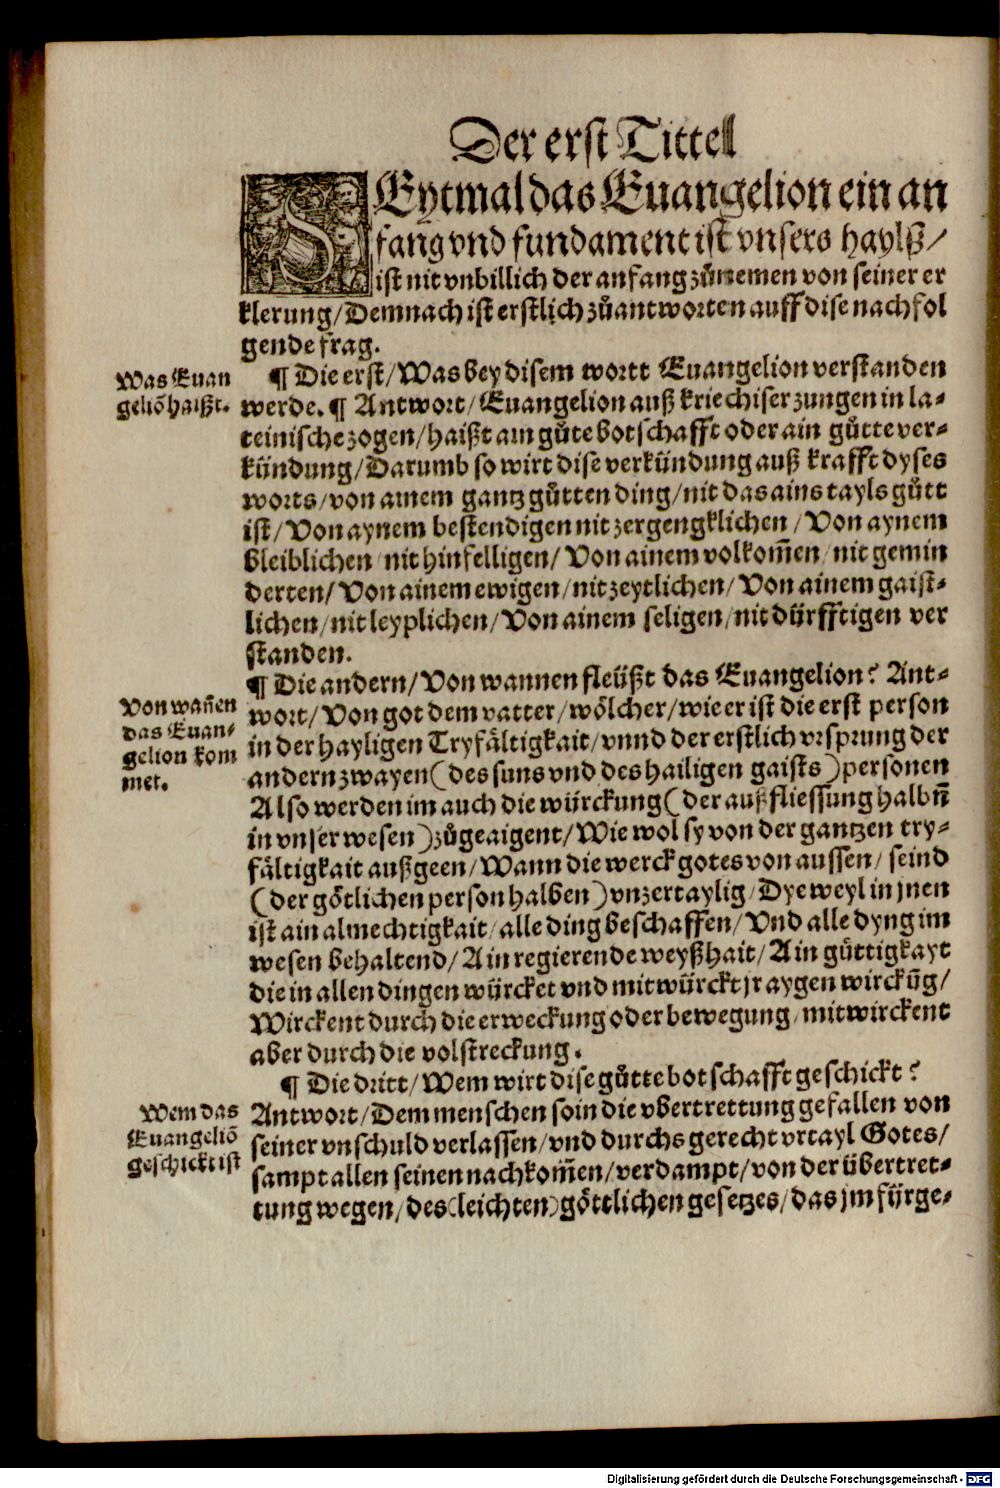 Der erst Tittel
SEytmal das Euangelion ein an
fang vnd fundament ist vnsers haylß/
ist nit vnbillich der anfang zůnemen von seiner er
klerung/Demnach ist erstlich zůantworten auff dise nachfol
gende frag.
Was Euan
geliõ haißt.
¶ Die erst/Was bey disem wortt Euangelion verstanden
werde.¶ Antwort/Euangelion auß kriechiser zungen in la-
teinische zogen/haißt ain gůte botschafft oder ain gůtte ver-
kündung/Darumb so wirt dise verkündung auß krafft dyses
worts/von ainem gantz gůtten ding/nit das ains tayls gůtt
ist/Von aynem bestendigen nit zergengklichen/Von aynem
bleiblichen/nit hinfelligen/Von ainem volkom̃en/nit gemin
derten/Von ainem ewigen/nit zeytlichen/Von ainem gaist-
lichen/nit leyplichen/Von ainem seligen/nit dürfftigen ver
standen.
Von wañen
das Euan-
gelion kom
met.
¶ Die andern/Von wannen fleüßt das Euangelion? Ant-
wort/Von got dem vatter/wölcher/wie er ist die erst person
in der hayligen Tryfältigkait/vnnd der erstlich vrsprung der
andern zwayen(des suns vnd des hailigen gaists)personen
Also werden im auch die würckung(der außfliessung halbñ
in vnser wesen)zůgeaigent/Wie wol sy von der gantzen try-
fältigkait außgeen/Wann die werck gotes von aussen/seind
(der götlichen person halben)vnzertaylig/Dye weyl in jnen
ist ain almechtigkait/alle ding beschaffen/Vnd alle dyng im
wesen behaltend/Ain regierende weyßhait/Ain gůttigkayt
die in allen dingen würcket vnd mitwürckt jr aygen wirckũg/
Wirckent durch die erweckung oder bewegung/mitwirckent
aber durch die volstreckung.
Wem das
Euangeliõ
geschickt ist
¶ Die dritt/Wem wirt dise gůtte botschafft geschickt?
Antwort/Dem menschen so in die vbertrettung gefallen von
seiner vnschuld verlassen/vnd durchs gerecht vrtayl Gotes/
sampt allen seinen nachkom̃en/verdampt/von der übertret-
tung wegen/des(leichten)göttlichen gesetzes/das jm fürge-
Digitalisierung gefördert durch die Deutsche Forschungsgemeinschaft - DFG